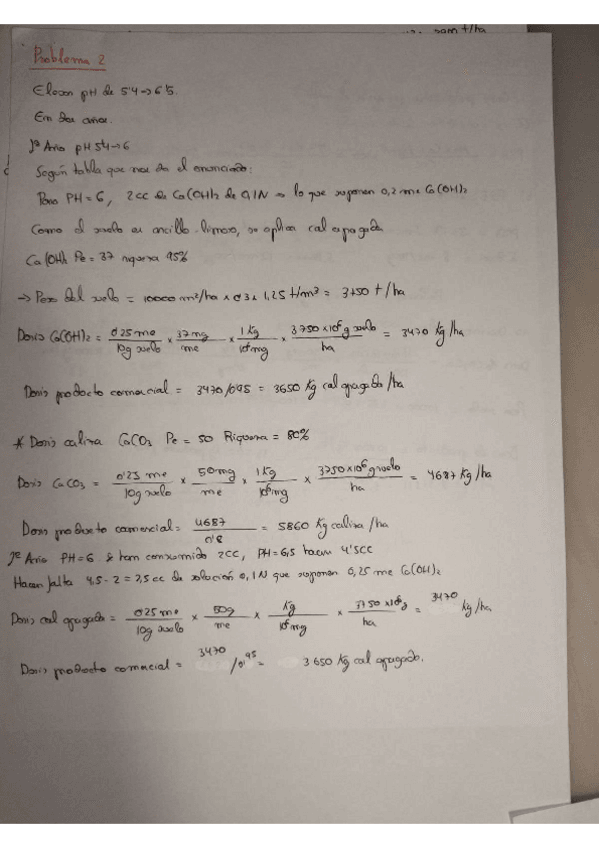 som t/ha
Problema 2
Elevar pH de 5'4→6'5.
En dos años.
1º Año pH 5'4→6
Según tabla que nos da el enunciado:
Para PH=6, 2cc de Ca(OH)2 de 0,1N → lo que suponen 0,2 me Ca(OH)2
Como el suelo es arcillo-limoso, se aplica cal apagada
Ca(OH)2 Pe = 37 riqueza 95%
→ Peso del suelo = 10000 m²/ha x 0'3 x 1,25 t/m³ = 3750 t/ha
Dosis Ca(OH)2 = 0'25 me / 10g suelo x 37 mg / me x 1 Kg / 10⁶ mg x 3750 x10⁶ g suelo / ha = 3470 Kg/ha
Dosis producto comercial = 3470/0'95 = 3650 Kg cal apagada/ha
* Dosis caliza CaCO3 Pe = 50 Riqueza = 80%
Dosis CaCO3 = 0'25 me / 10g suelo x 50mg / me x 1Kg / 10⁶mg x 3750x10⁶ g suelo / ha = 4687 Kg/ha
Dosis producto comercial = 4687 / 0'8 = 5860 Kg caliza/ha
2º Año PH=6 se han consumido 2cc, PH=6,5 hacen 4'5cc
Hacen falta 4,5 - 2 = 2,5 cc de solución 0,1N que suponen 0,25 me Ca(OH)2
Dosis cal apagada = 0'25 me / 10g suelo x 50g / me x Kg / 10⁶mg x 3750 x10⁶g / ha = 3470 Kg/ha
Dosis producto comercial = 3470/0'95 = 3650 Kg cal apagada.